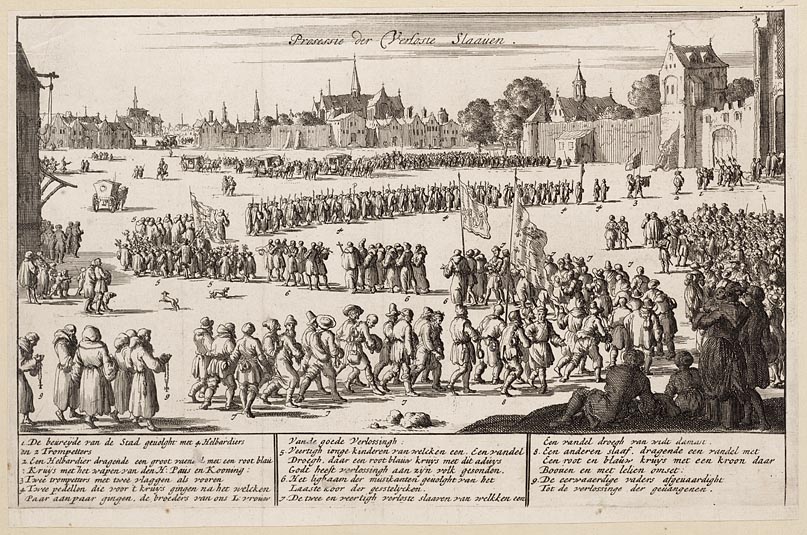 Prosessie der Verloste Slaaven.
1. De beureyde van de Stad gevolght met 4 Helbardiers
en 2 Trompetters
2 Een Helbardier dragende een groot vaendel met een root blau
Kruys met het wapen van den H. Paus en Kooning:
3 Twee trompetters met twee vlaggen als vooren
4 Twee pedellen die voor't kruys gingen na het welcken
Paar aan paar gingen, de broeders van ons L. vrouwe
Vande goede Verlossingh:
5 Veertigh ionge kinderen van welcken een. Een vandel
Droegh, daar een root blauw kruys met dit aduys
Godt heeft verlossingh aan zyn volk gesonden.
6 Het lighaam der musikanten gevolght van het
Laaste koor der geestelycken.
7 De twee en veertigh verloste slaaven van welkken een
Een vandel droegh van widt damast.
8. Een anderen slaaf, dragende een vandel met
Een root en blauw kruys met een kroon daar
Boonen en met lelien omset:
9 De eerwaerdige vaders afgevaardight
Tot de verlossinge der gevangenen.